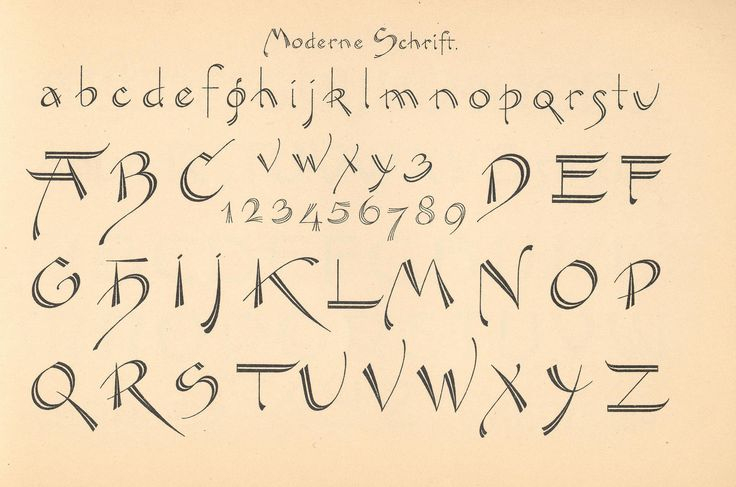 Moderne Schrift.
a b c d e f g h i j k l m n o p q r s t u
A B C v w x y z D E F
1 2 3 4 5 6 7 8 9
G H I J K L M N O P
Q R S T U V W X Y Z